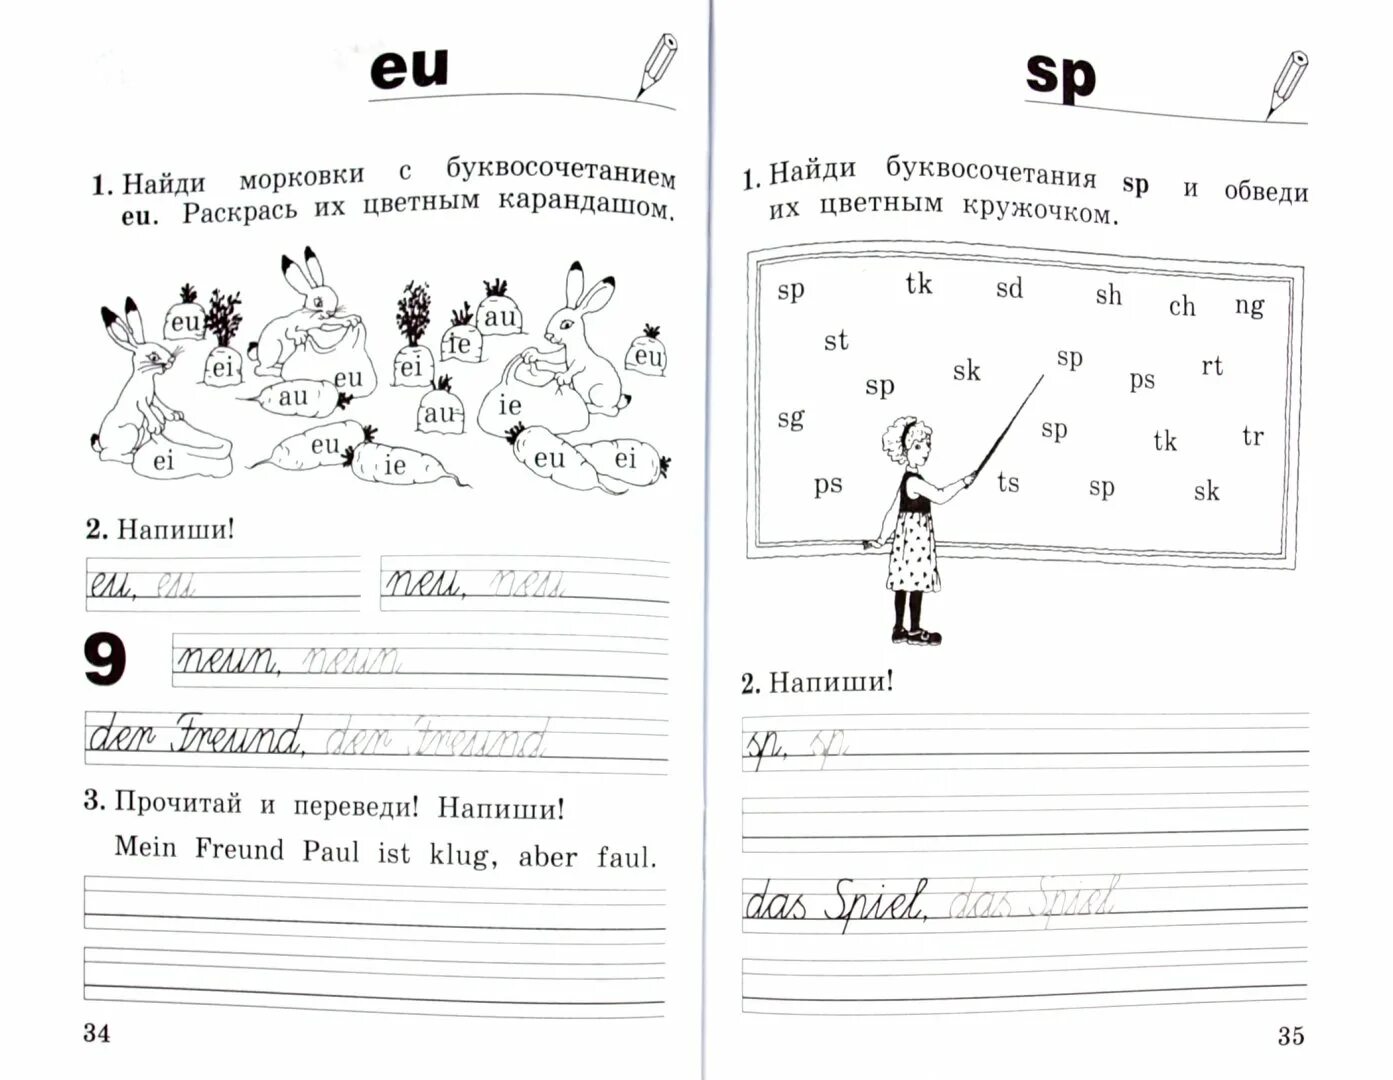 eu
1. Найди морковки с буквосочетанием
eu. Раскрась их цветным карандашом.
eu
ei
eu
au
ei
ie
au
eu
au
ie
eu
ie
eu
ei
ei
2. Напиши!
eu, eu
neu, neu
9
neun, neun
der Freund, der Freund
3. Прочитай и переведи! Напиши!
Mein Freund Paul ist klug, aber faul.
34
sp
1. Найди буквосочетания sp и обведи
их цветным кружочком.
sp tk sd sh ch ng
st sp rt
sp sk ps
sg sp tk tr
ps ts sp sk
2. Напиши!
sp, sp
das Spiel, das Spiel
35